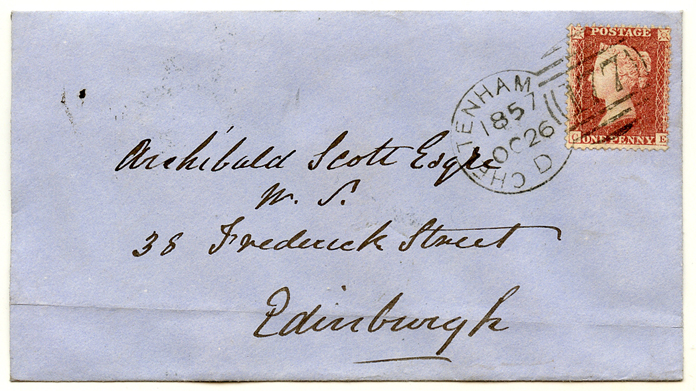 POSTAGE
ONE PENNY
E
CHELTENHAM
1857
OC 26
D
7
Archibald Scott Esqre
W. S.
38 Frederick Street
Edinburgh